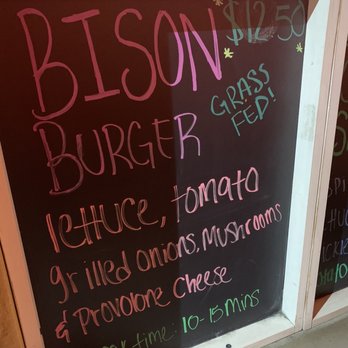 BISON $12.50
BURGER GRASS
FED!
lettuce, tomato
grilled onions, Mushrooms
& Provolone Cheese
time: 10-15 Mins